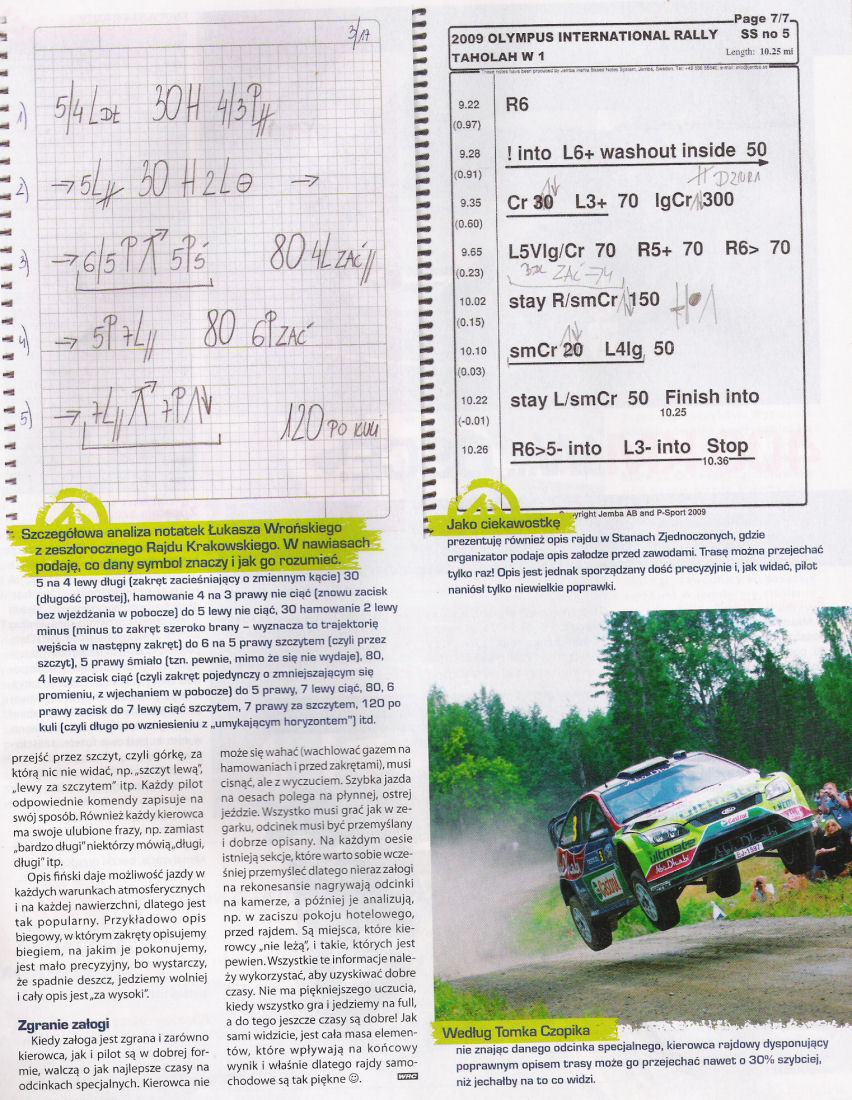 3/17
1) 5/4 L Dł 30 H 4/3 P//
2) → 5L// 30 H 2L ⊖ →
3) → 6/5 P 5Pś 80 4L ZAĆ//
4) → 5P 7L// 80 6P ZAĆ
5) → 7L// 7P 120 PO KULI
Page 7/7
2009 OLYMPUS INTERNATIONAL RALLY SS no 5
TAHOLAH W 1 Length: 10.25 mi
9.22 R6
(0.97)
9.28 ! into L6+ washout inside 50
(0.91)
DZIURA
9.35 Cr 30 L3+ 70 lgCr 300
(0.60)
9.65 L5Vlg/Cr 70 R5+ 70 R6> 70
(0.23)
10.02 stay R/smCr 150
(0.15)
10.10 smCr 20 L4lg 50
(0.03)
10.22 stay L/smCr 50 Finish into
10.25
(-0.01)
10.26 R6>5- into L3- into Stop
10.36
Copyright Jemba AB and P-Sport 2009
Szczegółowa analiza notatek Łukasza Wrońskiego
z zeszłorocznego Rajdu Krakowskiego. W nawiasach
podaję, co dany symbol znaczy i jak go rozumieć.
5 na 4 lewy długi (zakręt zacieśniający o zmiennym kącie) 30
(długość prostej), hamowanie 4 na 3 prawy nie ciąć (znowu zacisk
bez wjeżdżania w pobocze) do 5 lewy nie ciąć, 30 hamowanie 2 lewy
minus (minus to zakręt szeroko brany – wyznacza to trajektorię
wejścia w następny zakręt) do 6 na 5 prawy szczytem (czyli przez
szczyt), 5 prawy śmiało (tzn. pewnie, mimo że się nie wydaje), 80,
4 lewy zacisk ciąć (czyli zakręt pojedynczy o zmniejszającym się
promieniu, z wjechaniem w pobocze) do 5 prawy, 7 lewy ciąć, 80, 6
prawy zacisk do 7 lewy ciąć szczytem, 7 prawy za szczytem, 120 po
kuli (czyli długo po wzniesieniu z „umykającym horyzontem") itd.
Jako ciekawostkę
prezentuję również opis rajdu w Stanach Zjednoczonych, gdzie
organizator podaje opis załodze przed zawodami. Trasę można przejechać
tylko raz! Opis jest jednak sporządzany dość precyzyjnie i, jak widać, pilot
naniósł tylko niewielkie poprawki.
przejść przez szczyt, czyli górkę, za
którą nic nie widać, np. „szczyt lewą",
„lewy za szczytem" itp. Każdy pilot
odpowiednie komendy zapisuje na
swój sposób. Również każdy kierowca
ma swoje ulubione frazy, np. zamiast
„bardzo długi" niektórzy mówią „długi,
długi" itp.
Opis fiński daje możliwość jazdy w
każdych warunkach atmosferycznych
i na każdej nawierzchni, dlatego jest
tak popularny. Przykładowo opis
biegowy, w którym zakręty opisujemy
biegiem, na jakim je pokonujemy,
jest mało precyzyjny, bo wystarczy,
że spadnie deszcz, jedziemy wolniej
i cały opis jest „za wysoki".
Zgranie załogi
Kiedy załoga jest zgrana i zarówno
kierowca, jak i pilot są w dobrej for-
mie, walczą o jak najlepsze czasy na
odcinkach specjalnych. Kierowca nie
może się wahać (wachlować gazem na
hamowaniach i przed zakrętami), musi
cisnąć, ale z wyczuciem. Szybka jazda
na oesach polega na płynnej, ostrej
jeździe. Wszystko musi grać jak w ze-
garku, odcinek musi być przemyślany
i dobrze opisany. Na każdym oesie
istnieją sekcje, które warto sobie wcze-
śniej przemyśleć dlatego nieraz załogi
na rekonesansie nagrywają odcinki
na kamerze, a później je analizują,
np. w zaciszu pokoju hotelowego,
przed rajdem. Są miejsca, które kie-
rowcy „nie leżą", i takie, których jest
pewien. Wszystkie te informacje nale-
ży wykorzystać, aby uzyskiwać dobre
czasy. Nie ma piękniejszego uczucia,
kiedy wszystko gra i jedziemy na full,
a do tego jeszcze czasy są dobre! Jak
sami widzicie, jest cała masa elemen-
tów, które wpływają na końcowy
wynik i właśnie dlatego rajdy samo-
chodowe są tak piękne ☺. WRC
3
Castrol
ultimate
Abu Dhabi
Abu Dhabi
Castrol
Według Tomka Czopika
nie znając danego odcinka specjalnego, kierowca rajdowy dysponujący
poprawnym opisem trasy może go przejechać nawet o 30% szybciej,
niż jechałby na to co widzi.